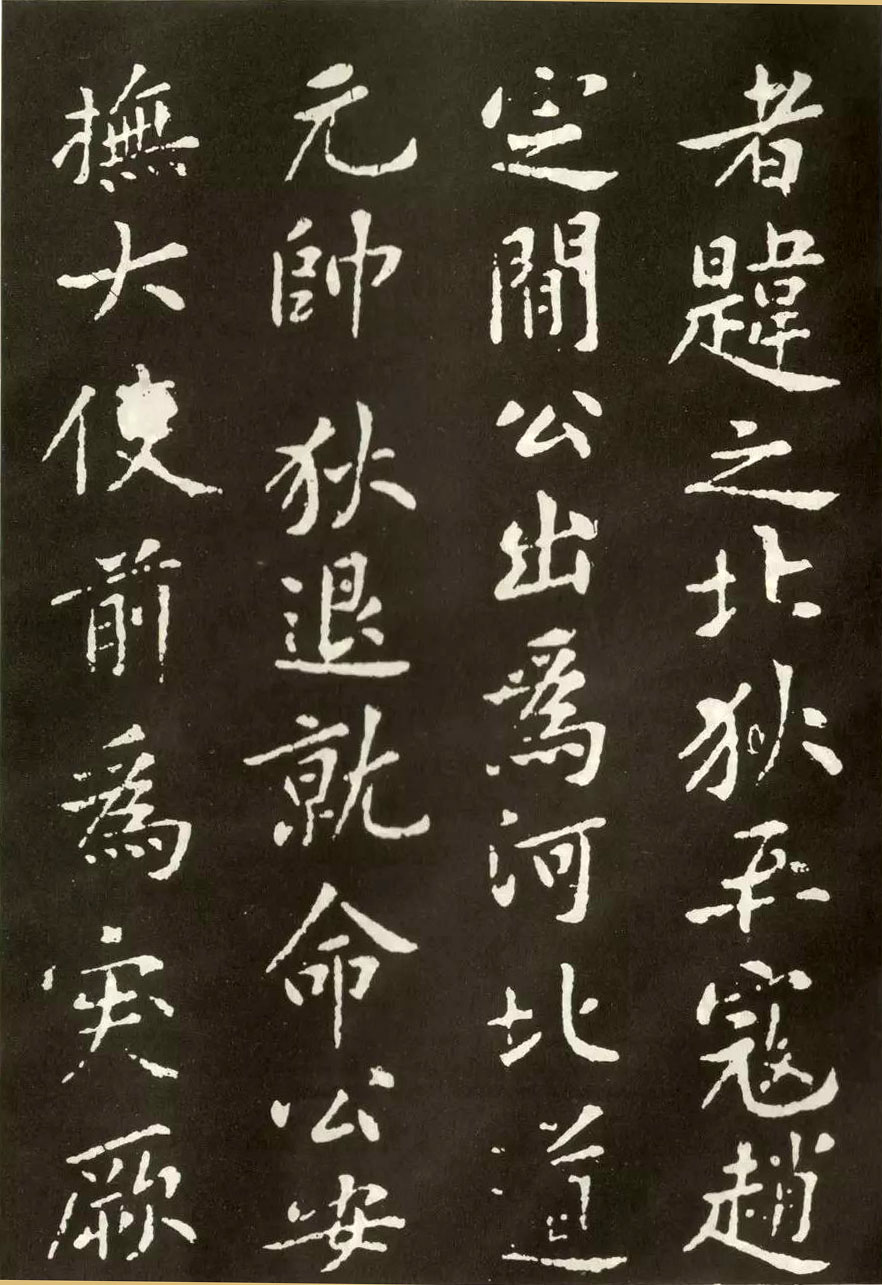 者韙之北狄平寇趙
定間公出為河北道
元帥狄退就命公安
撫大使前為突厥